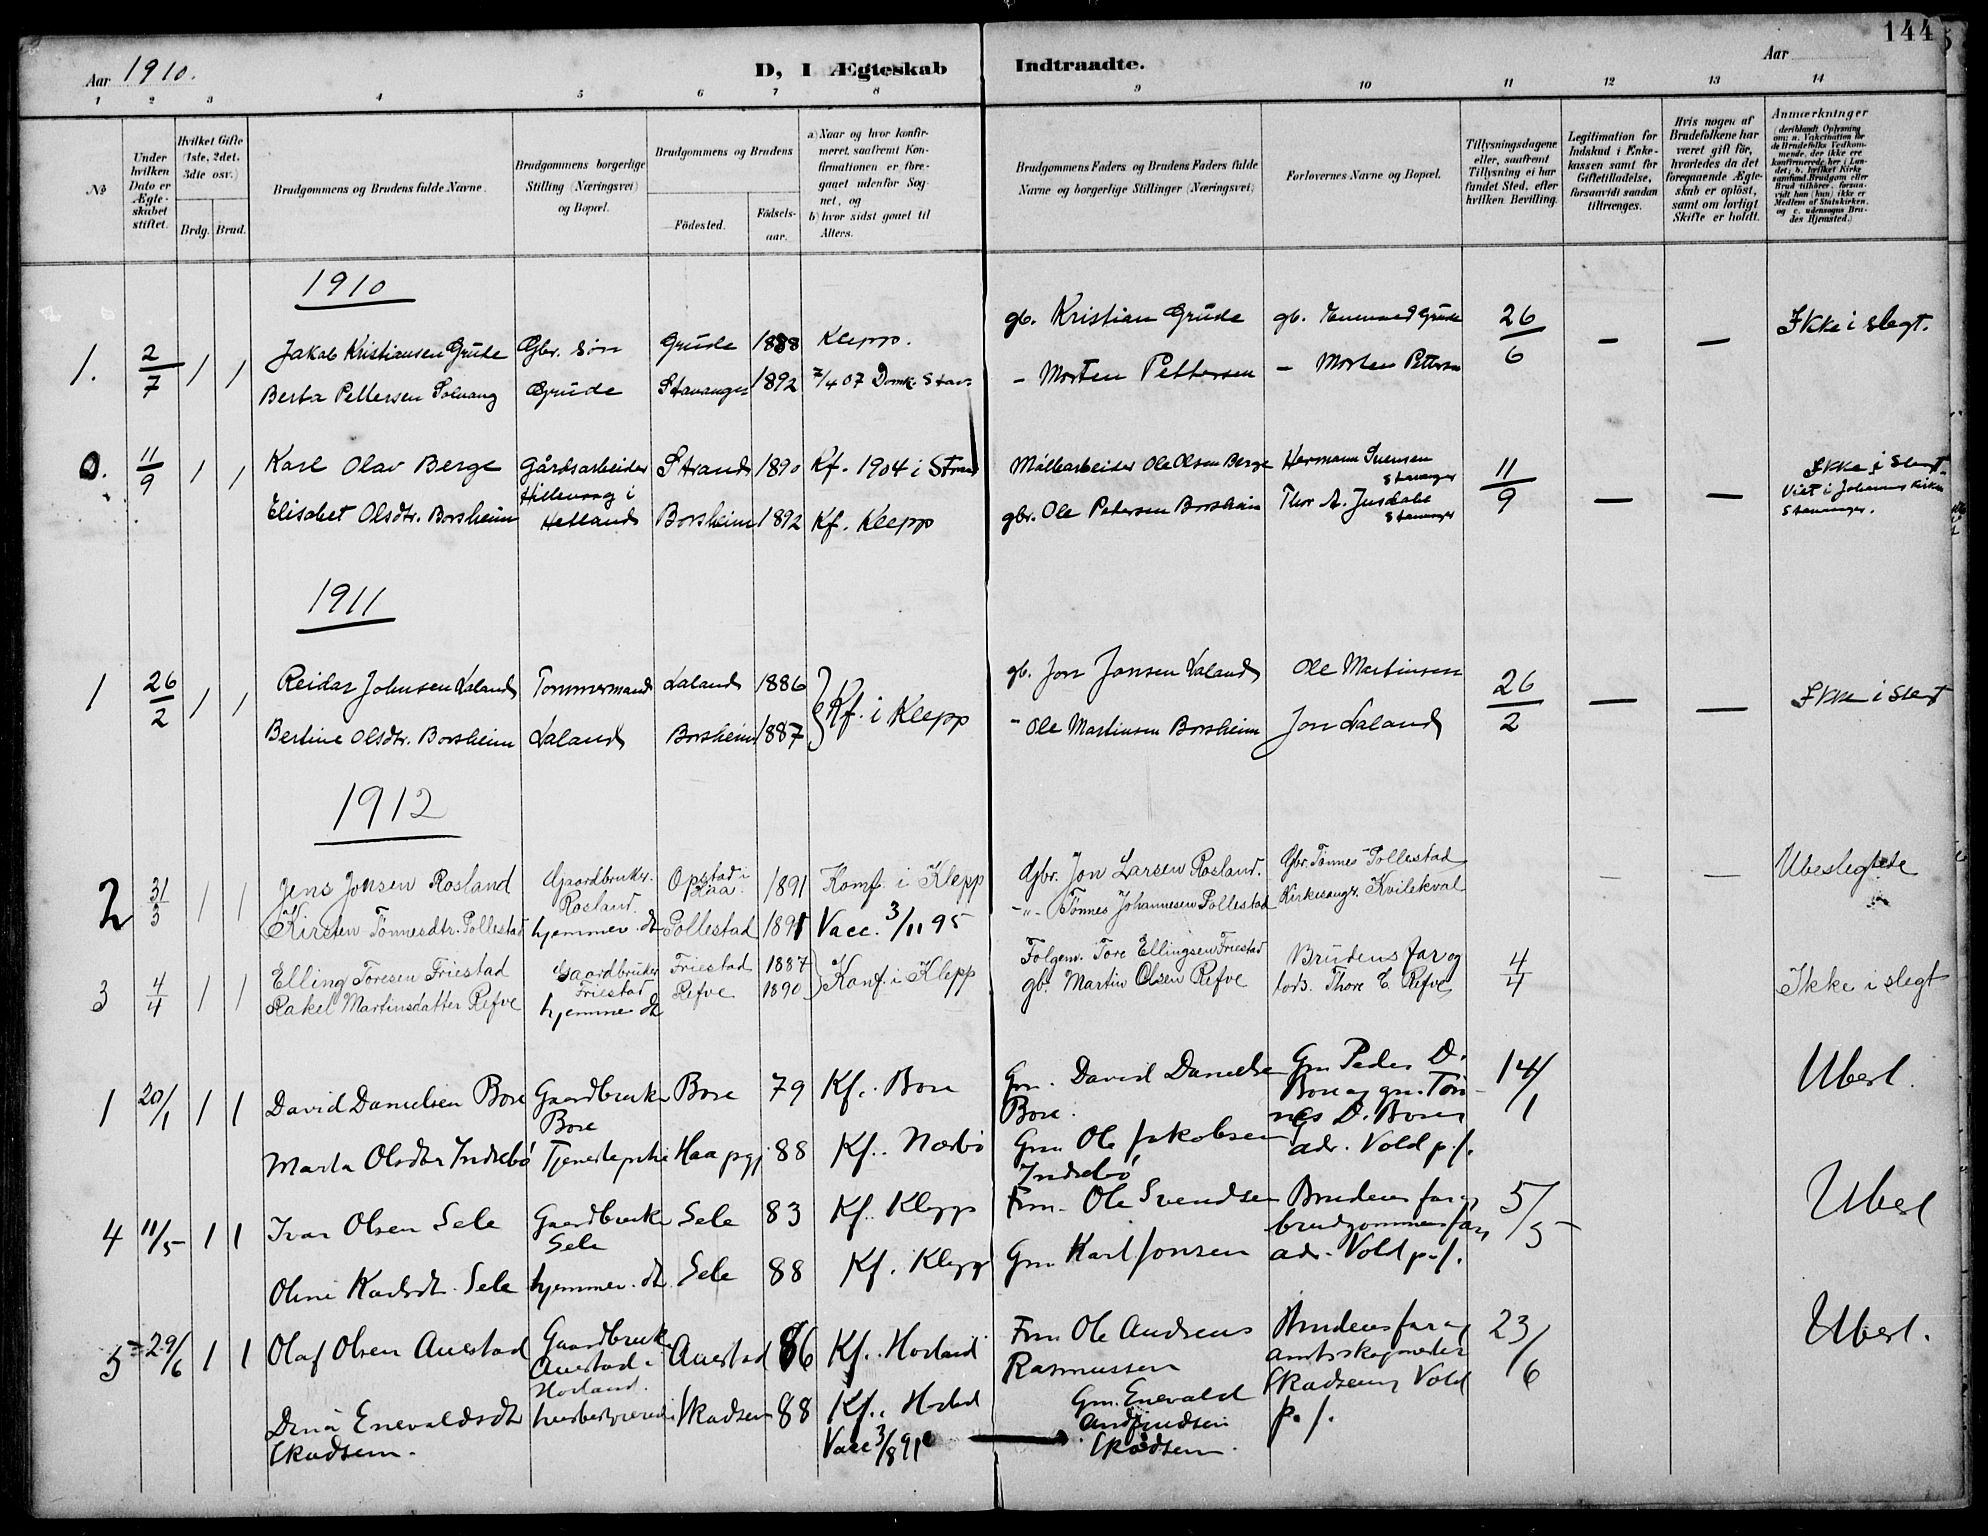 144
Aar 1910.
D, I Ægteskab Indtraadte.
Aar
1 2 3 4 5 6 7 8 9 10 11 12 13 14
No
Under hvilken Dato er Ægteskabet stiftet.
Hvilket Gifte (1ste, 2det, 3die osv.)
Brdg. Brud.
Brudgommens og Brudens fulde Navne.
Brudgommens borgerlige Stilling (Næringsvei) og Bopæl.
Brudgommens og Brudens
Födested. Födselsaar.
a) Naar og hvor konfirmeret, saafremt Konfirmationen er foregaaet udenfor Sognet, og
b) hvor sidst gaaet til Alters.
Brudgommens Faders og Brudens Faders fulde Navne og borgerlige Stillinger (Næringsvei)
Forlovernes Navne og Bopæl.
Tillysningsdagene eller, saafremt Tillysning ei har fundet Sted, efter hvilken Bevilling.
Legitimation for Indskud i Enkekassen samt for Giftetilladelse, forsaavidt saadan tiltrænges.
Hvis nogen af Brudefolkene har været gift för, hvorledes da det foregaaende Ægteskab er oplöst, samt om lovligt Skifte er holdt.
Anmærkninger
1910
1. 2/7 1 1 Jakob Kristiansen Grude Gbr. søn Grude 1888 Klepp. gb. Kristian Grude gb. Grude 26/6 — — Ikke i slegt.
Berta Pettersen Solvang Grude Stavanger 1892 2/4 07 Domk. Stav. - Morten Pettersen - Morten Petters
11/9 1 1 Karl Olav Berge Gårdsarbeider Strand 1890 Kf. 1904 i Strand Målearbeider Ole Olsen Berge Hermann Svensen Stavanger 11/9 — — Ikke i slegt.
Hillevaag i Viet i Johannes kirke
Elisabet Olsdtr. Borsheim Hetland Borsheim 1892 Kf. Klepp gbr. Ole Petersen Borsheim Thor A. Jusdale Stavanger Stavanger.
1911
1 26/2 1 1 Reidar Johnsen Laland Tømmermand Laland 1886 Kf. i Klepp gb. Jon Jonsen Laland Ole Martinsen 26/2 — — Ikke i slegt
Bertine Olsdtr. Borsheim Laland Borsheim 1887 " Ole Martinsen Borsheim Jon Laland
1912
2 31/3 1 1 Jens Jonsen Rosland Gaardbruker. Rosland. Opstad i Haa. 1891 Konf. i Klepp Gbr. Jon Larsen Rosland. Gbr. Tönnes Pollestad — — Ubeslegtede
Kirsten Tönnesdtr. Pollestad hjemmev. dt. Pollestad 1891 Vacc. 3/11 95 -"- Tönnes Johannesen Pollestad Kirkesangr. Kvilekval
3 4/4 1 1 Elling Toresen Friestad Gaardbruker Friestad Friestad 1887 Konf. i Klepp Folgem. Tore Ellingsen Friestad Brudens far og 4/4 Ikke i slegt
Rakel Martinsdatter Refve hjemmev. dt. Refve 1890 gb. Martin Olsen Refve lods. Thore E. Refve
1 20/1 1 1 David Danielsen Bore Gaardbruker Bore Bore 79 Kf. Bore Gm. David Danielsen Bore. Gm. Peder D. Bore og gm. Tönnes D. Bore 14/1 Ubesl.
Marta Olsdtr Indrebö Tjenestepike Haa pgj 88 Kf. Nærbö Gm Ole Jakobsen Indrebö adr. Vold p.f.
4 11/5 1 1 Ivar Olsen Sele Gaardbruker Sele Sele 83 Kf. Klepp Fm. Ole Svendsen Brudens far og brudgommens far, 5/5 Ubesl
Oline Karlsdt. Sele hjemmev. dt. Sele 88 Kf. Klepp Gm. Karl Jonsen adr. Vold p.f.
5 29/6 1 1 Olaf Olsen Auestad Gaardbruk. Auestad i Höiland. Auestad 86 Kf. Höiland Fm Ole Andreas Rasmussen Brudens far og amtsskogmester 23/6 Ubesl.
Dina Enevaldsdtr Skadsem. husbestyrerinde Skadsem 88 Kf. Höiland Gm. Enevald Andfindsen Skadsem. Skadsem, Vold p.f.
Vacc 3/8 91